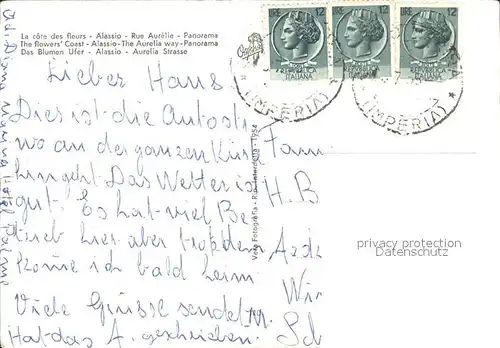 La côte des fleurs - Alassio - Rue Aurélie - Panorama
The flowers' Coast - Alassio - The Aurelia way - Panorama
Das Blumen Ufer - Alassio - Aurelia Strasse
LIRE 12
12
12
ITALIANA
(IMPERIA)
(IMPERIA)
Lieber Hans
Dies ist die Autostr
wo an der ganzen Küs
hingeht. Das Wetter is
gut. Es hat viel Be
trieb hier aber trotzdem
komme ich bald heim
Viele Grüsse sendet M.
Hat das A. geschrieben.
Vera Fotografia
Fam
H. B
Wir
Sch
privacy protection
Datenschutz